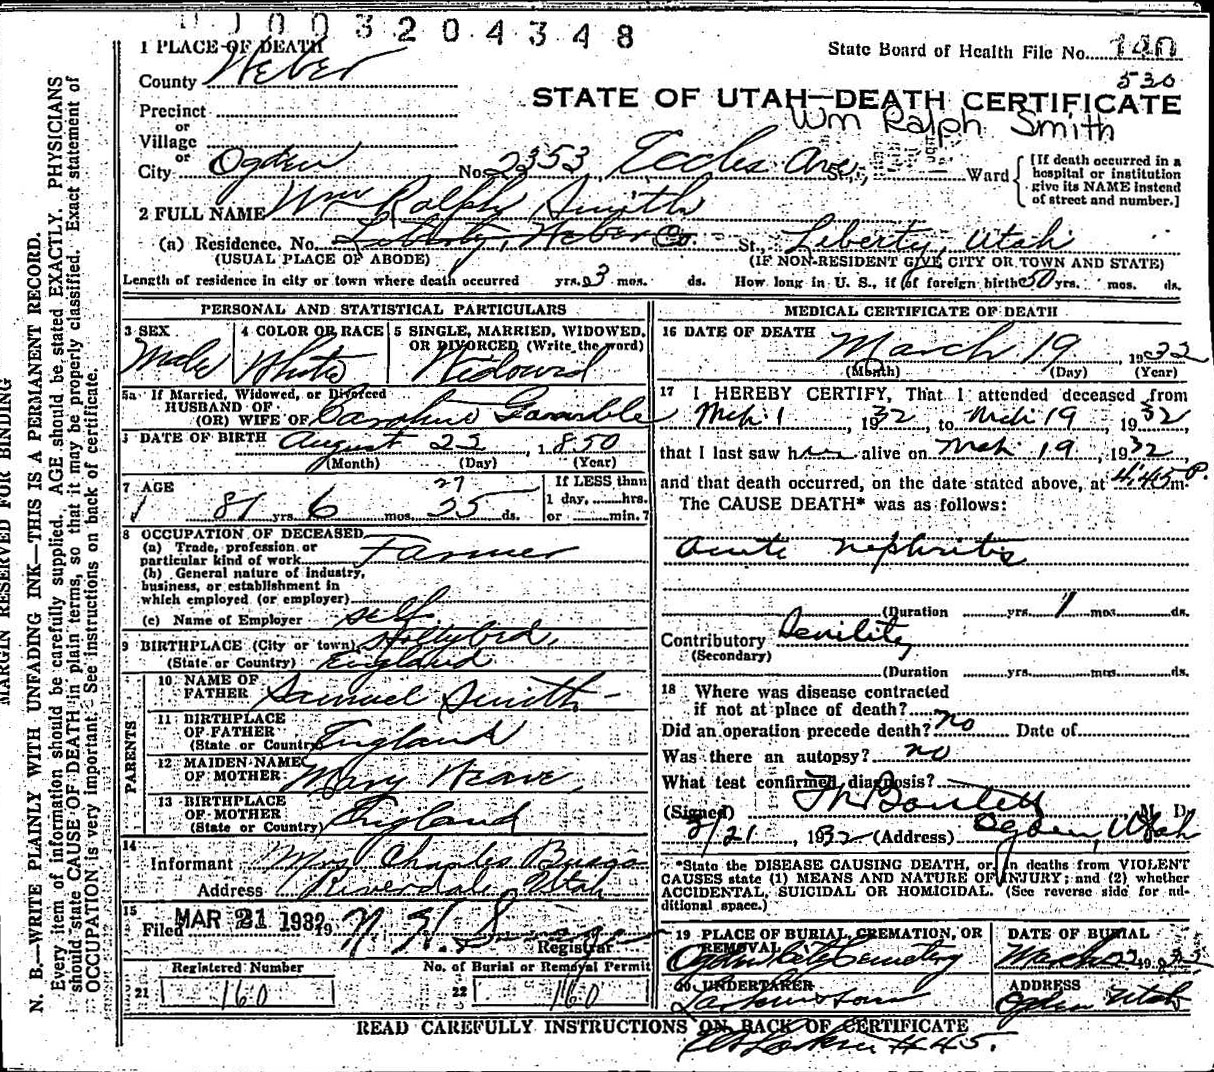 003204348
1 PLACE OF DEATH
State Board of Health File No. 140
County Weber
530
STATE OF UTAH—DEATH CERTIFICATE
Precinct
or
Wm Ralph Smith
Village
or
City Ogden No. 2353 Eccles Ave. St., Ward
[If death occurred in a hospital or institution give its NAME instead of street and number.]
2 FULL NAME Wm Ralph Smith
(a) Residence. No. Liberty, Weber Co. St., Liberty, Utah
(USUAL PLACE OF ABODE) (IF NON-RESIDENT GIVE CITY OR TOWN AND STATE)
Length of residence in city or town where death occurred yrs. 3 mos. ds. How long in U. S., if of foreign birth 50 yrs. mos. ds.
PERSONAL AND STATISTICAL PARTICULARS
3 SEX
Male
4 COLOR OR RACE
White
5 SINGLE, MARRIED, WIDOWED,
OR DIVORCED (Write the word)
Widowed
5a If Married, Widowed, or Divorced
HUSBAND OF
(OR) WIFE OF Caroline Gamble
DATE OF BIRTH August 22, 1850
(Month) (Day) (Year)
27
7 AGE
81 yrs. 6 mos. 25 ds.
If LESS than
1 day, hrs.
or min.?
8 OCCUPATION OF DECEASED
(a) Trade, profession or
particular kind of work Farmer
(b) General nature of industry,
business, or establishment in
which employed (or employer)
(c) Name of Employer self
9 BIRTHPLACE (City or town)
(State or Country) England
PARENTS
10 NAME OF
FATHER Samuel Smith
11 BIRTHPLACE
OF FATHER
(State or Country) England
12 MAIDEN NAME
OF MOTHER Mary
13 BIRTHPLACE
OF MOTHER
(State or Country) England
14
Informant Mrs Charles
Address Riverdale, Utah
15
Filed MAR 21 1932 19
Registrar
Registered Number
21 160
No. of Burial or Removal Permit
22 160
MEDICAL CERTIFICATE OF DEATH
16 DATE OF DEATH
March 19, 1932
(Month) (Day) (Year)
17 I HEREBY CERTIFY, That I attended deceased from
Mch 1, 1932, to Mch 19 1932,
that I last saw him alive on Mch 19, 1932,
and that death occurred, on the date stated above, at 4:45 P.m
The CAUSE DEATH* was as follows:
acute nephritis
(Duration yrs. 1 mos. ds.
Contributory Senility
(Secondary)
(Duration yrs. mos. ds.
18 Where was disease contracted
if not at place of death?
Did an operation precede death? no Date of
Was there an autopsy? no
What test confirmed diagnosis?
(Signed) M. D.
3/21, 1932 (Address) Ogden, Utah
*State the DISEASE CAUSING DEATH, or, in deaths from VIOLENT
CAUSES state (1) MEANS AND NATURE OF INJURY; and (2) whether
ACCIDENTAL, SUICIDAL OR HOMICIDAL. (See reverse side for ad-
ditional space.)
19 PLACE OF BURIAL, CREMATION, OR
REMOVAL
Ogden City Cemetery
DATE OF BURIAL
March 22 1932
20 UNDERTAKER
ADDRESS
Ogden Utah
READ CAREFULLY INSTRUCTIONS ON BACK OF CERTIFICATE
#45.
MARGIN RESERVED FOR BINDING
N. B.—WRITE PLAINLY WITH UNFADING INK—THIS IS A PERMANENT RECORD.
Every item of information should be carefully supplied. AGE should be stated EXACTLY. PHYSICIANS
should state CAUSE OF DEATH in plain terms, so that it may be properly classified. Exact statement of
OCCUPATION is very important. See instructions on back of certificate.